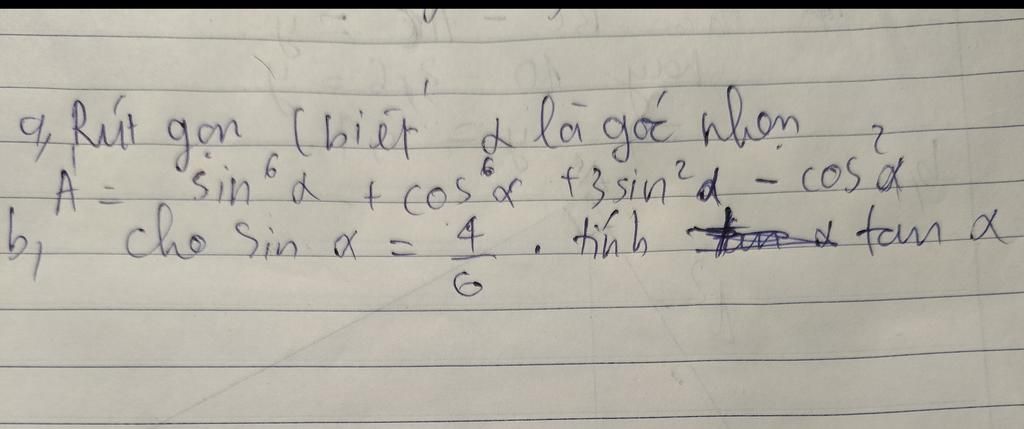 a, Rút gọn (biết α là góc nhọn
A = sin⁶α + cos⁶α + 3sin²α - cos²α
b, cho sin α = 4/6 . tính tan α